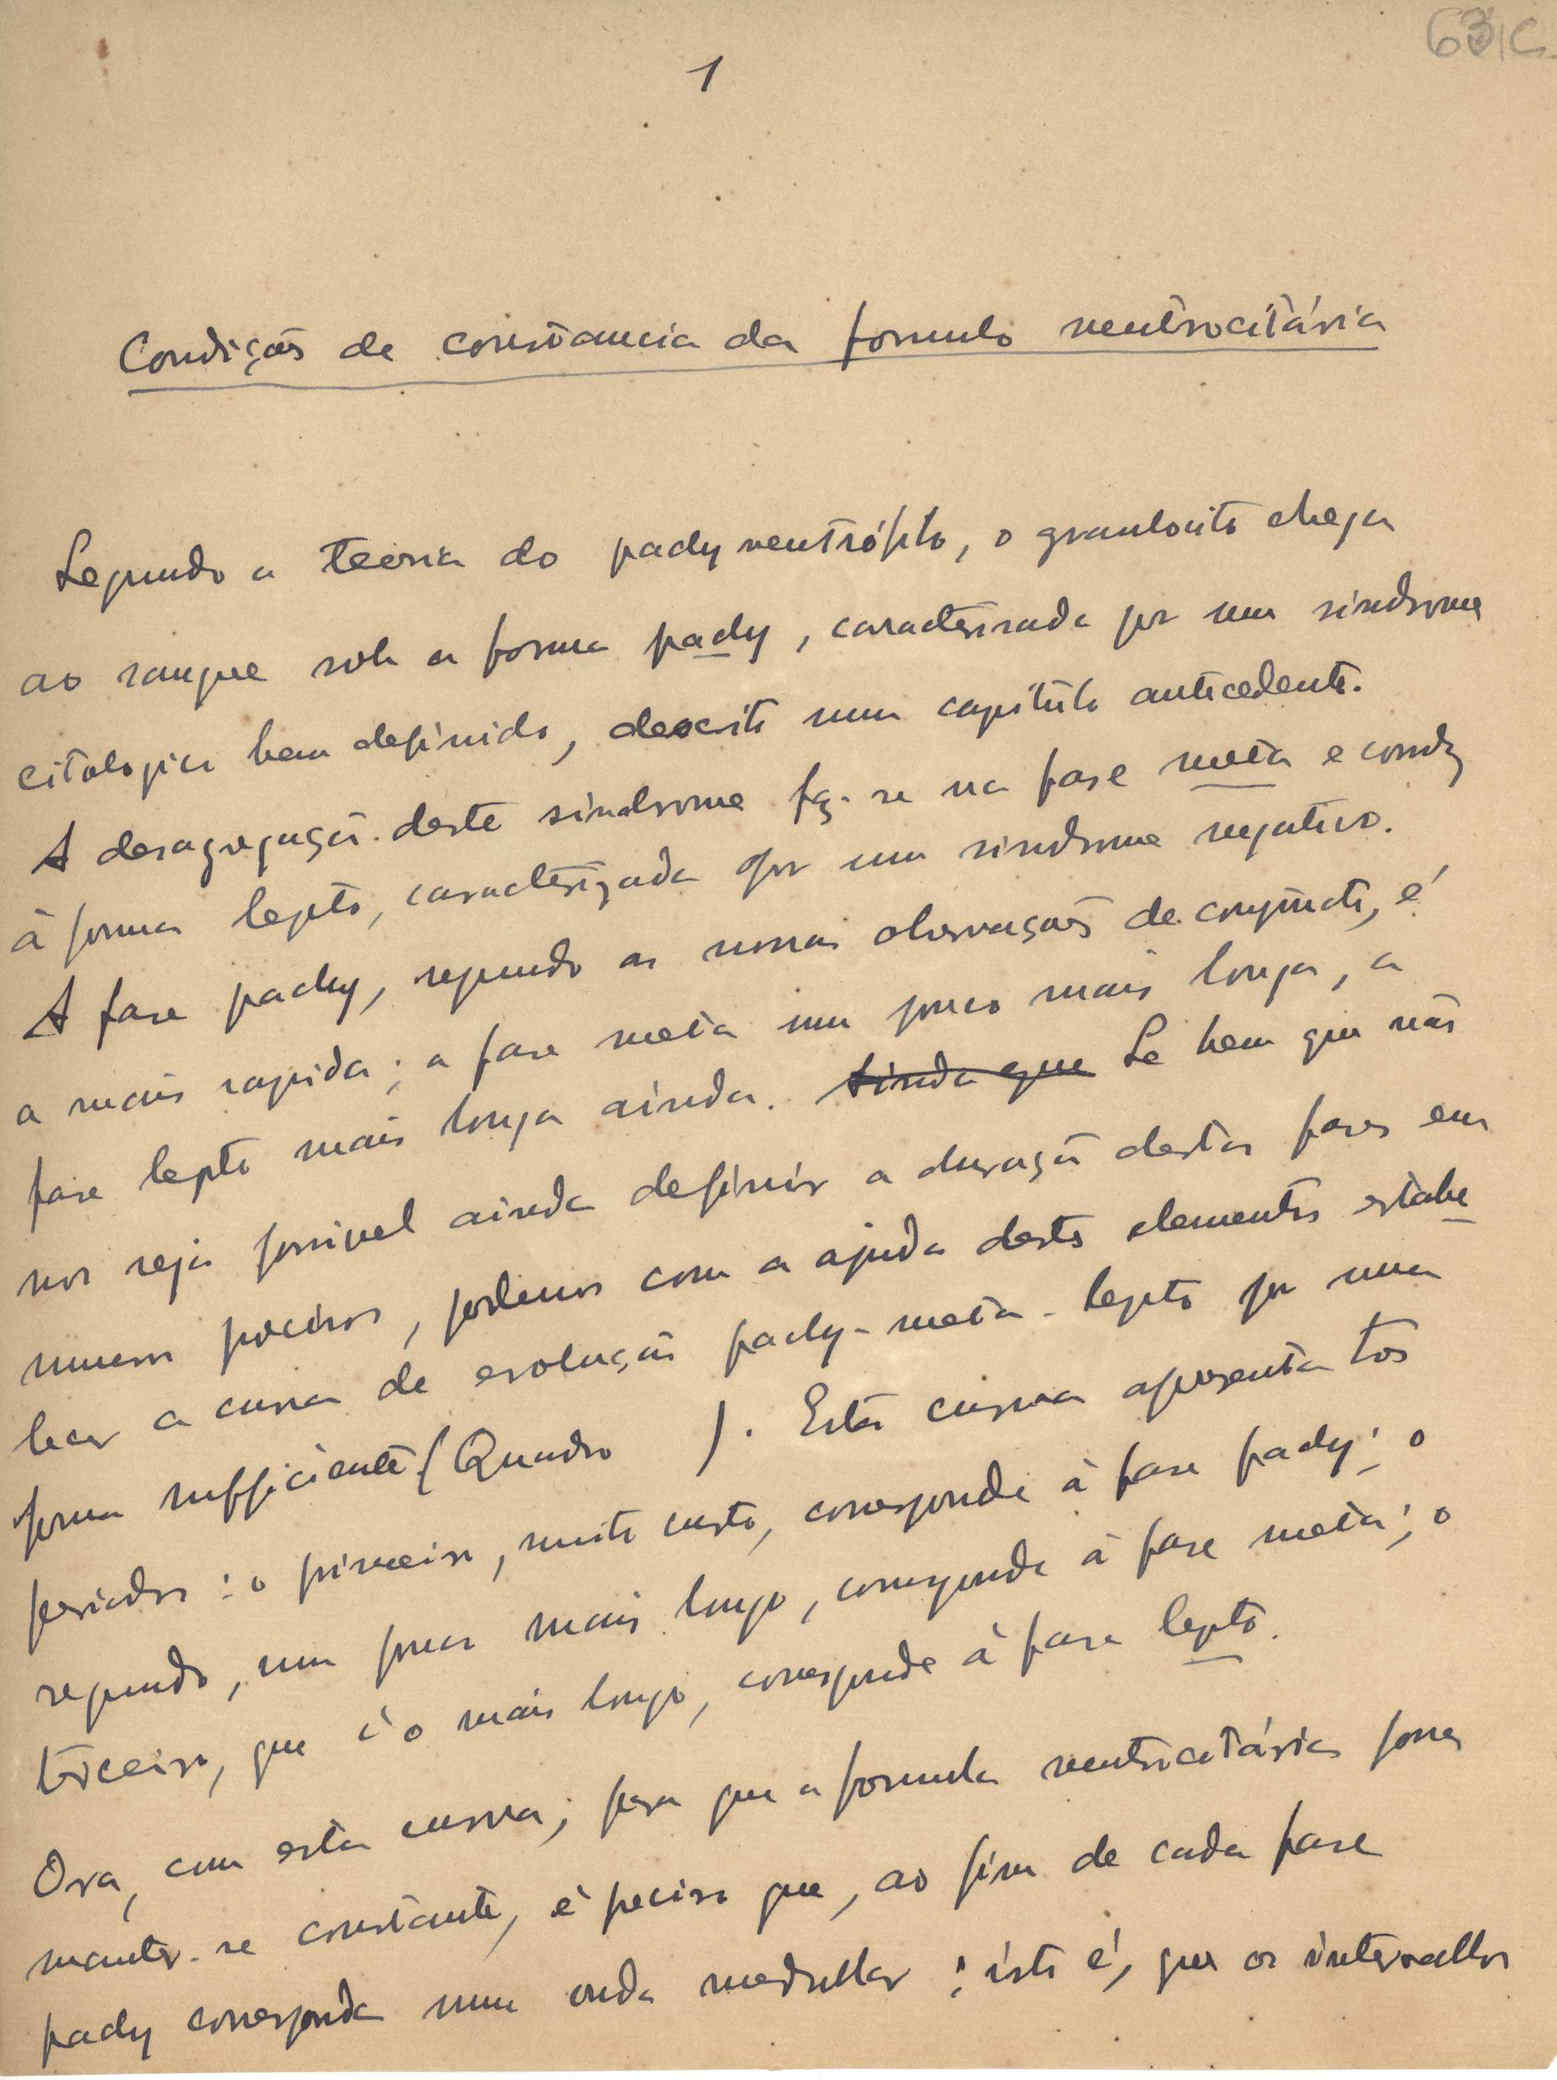 63/C
1
Condições de constancia da formula neutrocitária
Segundo a teoria do pachyneutrófilo, o granulocito chega
ao sangue sob a forma pachy, caracterisada por um sindrome
citologico bem definido, descrito num capitulo antecedente.
A desagregação deste sindrome faz-se na fase meta e conduz
à forma lepto, caracterizada por um sindrome negativo.
A fase pachy, segundo as nossas observações de conjuncto, é
a mais rapida; a fase meta um pouco mais longa, a
fase lepto mais longa ainda. Ainda que Se bem que não
nos seja possivel ainda definir a duração destas fases em
numeros precisos, podemos com a ajuda destes elementos estabe
lecer a curva de evolução pachy-meta-lepto por uma
forma sufficiente (Quadro ). Esta curva apresenta tres
periodos: o primeiro, muito curto, corresponde à fase pachy; o
segundo, um pouco mais longo, corresponde à fase meta; o
terceiro, que é o mais longo, corresponde à fase lepto.
Ora, com esta curva, para que a formula neutrocitária possa
manter-se constante, é preciso que, ao fim de cada fase
pachy corresponda uma onda medullar; isto é, que os intervallos